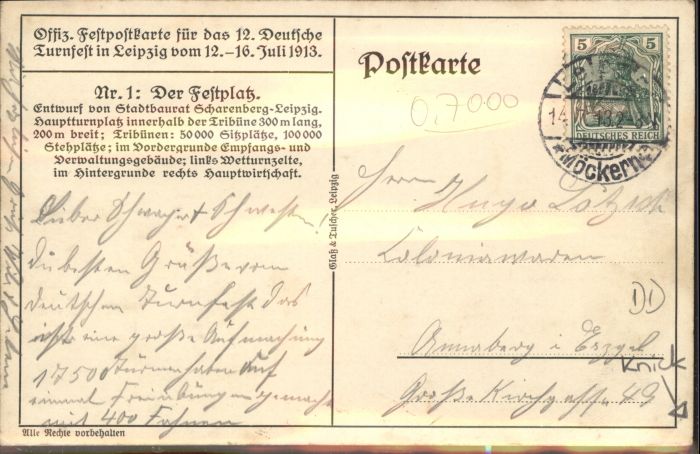 Offiz. Festpostkarte für das 12. Deutsche
Turnfest in Leipzig vom 12.–16. Juli 1913.
Nr. 1: Der Festplatz.
Entwurf von Stadtbaurat Scharenberg-Leipzig.
Hauptturnplatz innerhalb der Tribüne 300 m lang,
200 m breit; Tribünen: 50000 Sitzplätze, 100000
Stehplätze; im Vordergrunde Empfangs- und
Verwaltungsgebäude; links Wetturnzelte,
im Hintergrunde rechts Hauptwirtschaft.
Lieber Schwager &
Die besten Grüße vom
deutschen Turnfest das
ist eine große Aufmachung
17500 Turner haben auf
einmal Freiübungen gemacht
mit 400 Fahnen
Alle Rechte vorbehalten
Glaß & Tuscher, Leipzig
Postkarte
0,7000
5 5
DEUTSCHES REICH
14.
13.2-3N
*Möckern
Herrn
Hugo
Colonialwaren
DD
Annaberg i Erzgeb
Knick
Große Kirchgasse 49